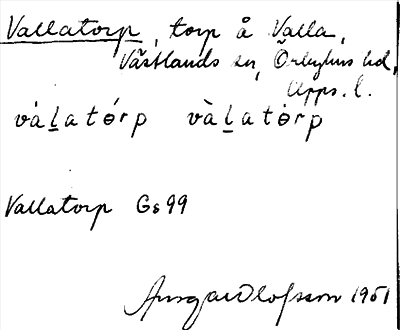 Vallatorp, torp å Valla,
Västlands sn, Örbyhus hd,
Upps. l.
vàl̲atórp vàl̲atòrp
Vallatorp Gs 99
Ansgar Olofsson 1951